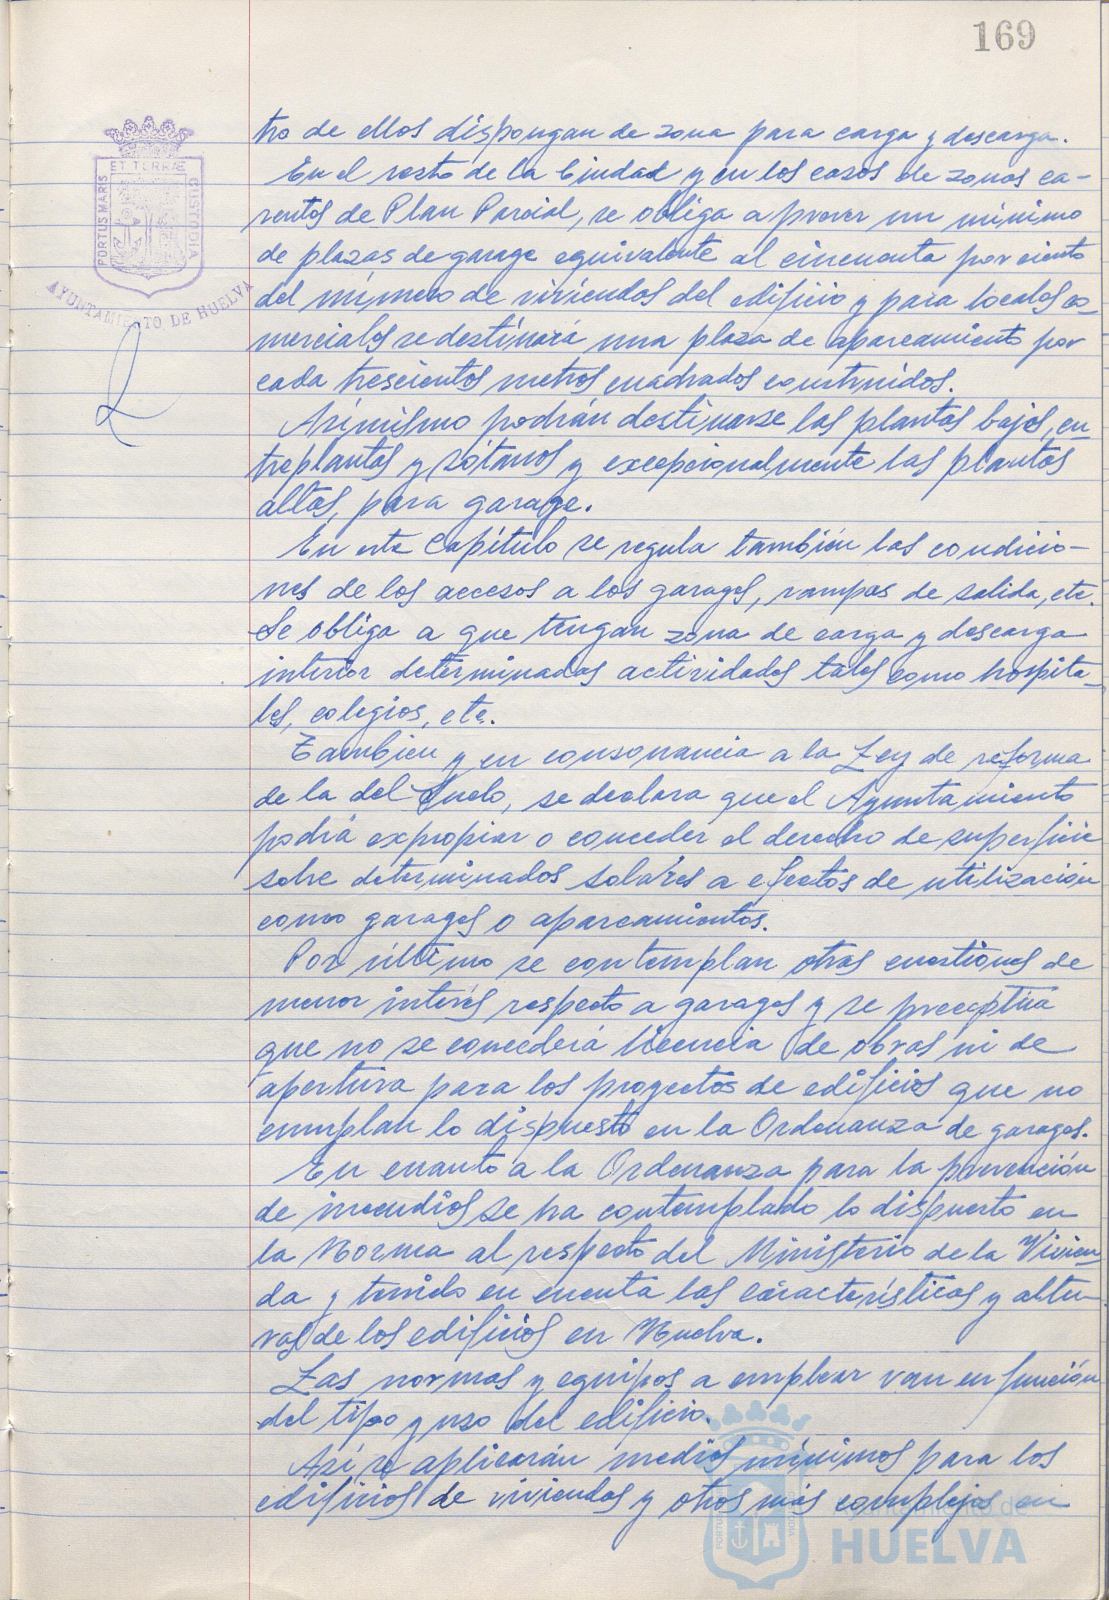 169
ET TERRÆ
PORTUS MARIS
CUSTODIA
AYUNTAMIENTO DE HUELVA
tro de ellos dispongan de zona para carga y descarga.
En el resto de la Ciudad y en los casos de zonas ca-
rentes de Plan Parcial, se obliga a prever un mínimo
de plazas de garage equivalente al cincuenta por ciento
del número de viviendas del edificio y para locales co-
merciales se destinará una plaza de aparcamiento por
cada trescientos metros cuadrados construidos.
Asimismo podrán destinarse las plantas bajas, en-
treplantas y sótanos y excepcionalmente las plantas
altas, para garage.
En este Capítulo se regula también las condicio-
nes de los accesos a los garages, rampas de salida, etc.
Se obliga a que tengan zona de carga y descarga
interior determinadas actividades tales como hospita-
les, colegios, etc.
Tambien y en consonancia a la Ley de reforma
de la del Suelo, se declara que el Ayuntamiento
podrá expropiar o conceder el derecho de superficie
sobre determinados solares a efectos de utilización
como garages o aparcamientos.
Por último se contemplan otras cuestiones de
menor interés respecto a garages y se preceptúa
que no se concederá licencia de obras ni de
apertura para los proyectos de edificios que no
cumplan lo dispuesto en la Ordenanza de garages.
En cuanto a la Ordenanza para la prevención
de incendios se ha contemplado lo dispuesto en
la Norma al respecto del Ministerio de la Vivien-
da y tenido en cuenta las características y altu-
ras de los edificios en Huelva.
Las normas y equipos a emplear van en función
del tipo y uso del edificio.
Así se aplicarán medios mínimos para los
edificios de viviendas y otros más complejos en
Ayuntamiento de
HUELVA